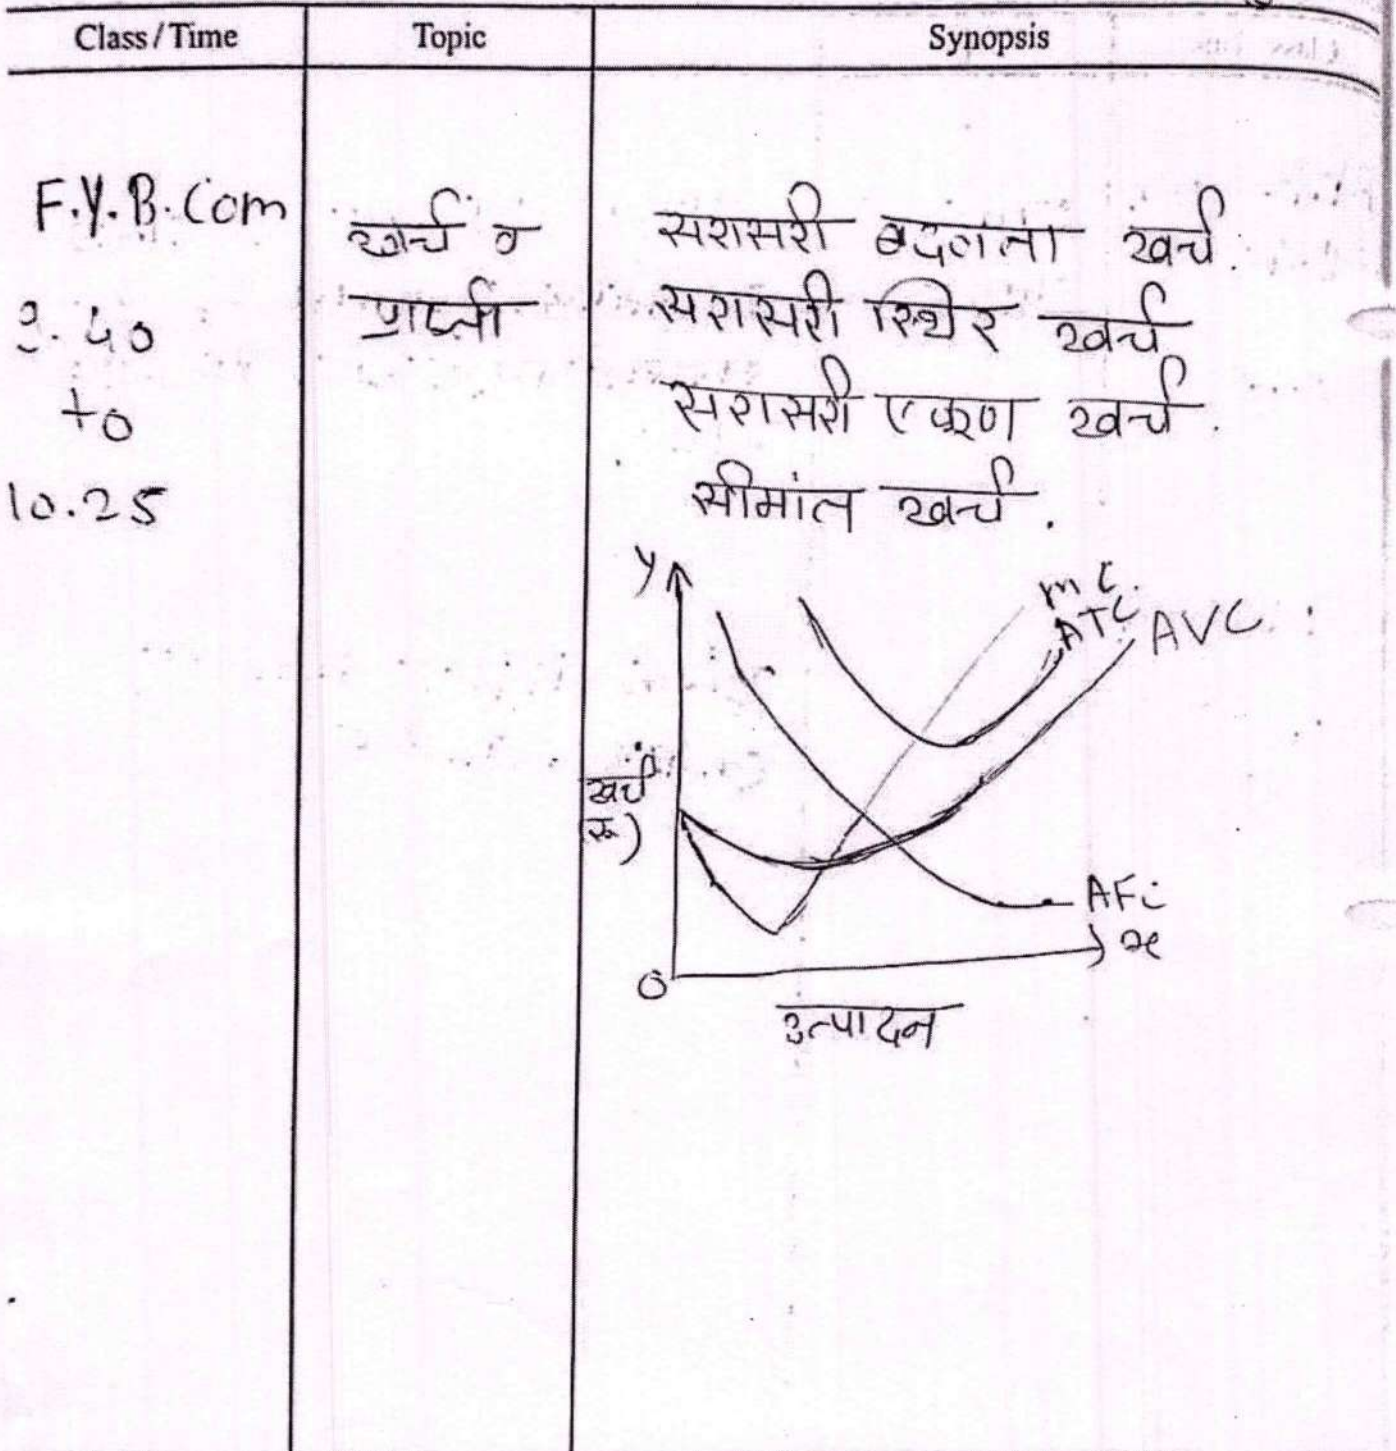 Class/Time
Topic
Synopsis
F.Y.B.Com
9.40
to
10.25
खर्च व
प्राप्ती
सरासरी बदलता खर्च.
सरासरी स्थिर खर्च
सरासरी एकूण खर्च.
सीमांत खर्च.
y
MC.
ATC
AVC
खर्च
(रू)
AFC
x
0
उत्पादन